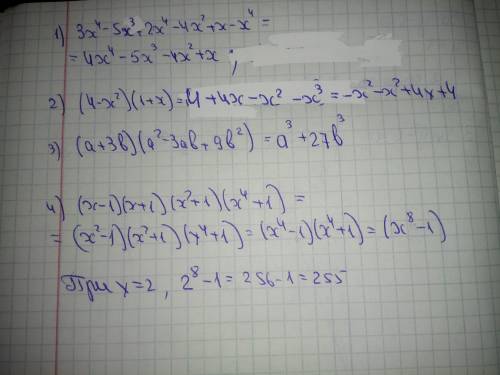 1) 3x⁴-5x³+2x⁴-4x²+x-x⁴=
=4x⁴-5x³-4x²+x;
2) (4-x²)(1+x)=4+4x-x²-x³=-x²-x²+4x+4
3) (a+3b)(a²-3ab+9b²)=a³+27b³
4) (x-1)(x+1)(x²+1)(x⁴+1)=
=(x²-1)(x²+1)(x⁴+1)=(x⁴-1)(x⁴+1)=(x⁸-1)
При x=2, 2⁸-1=256-1=255